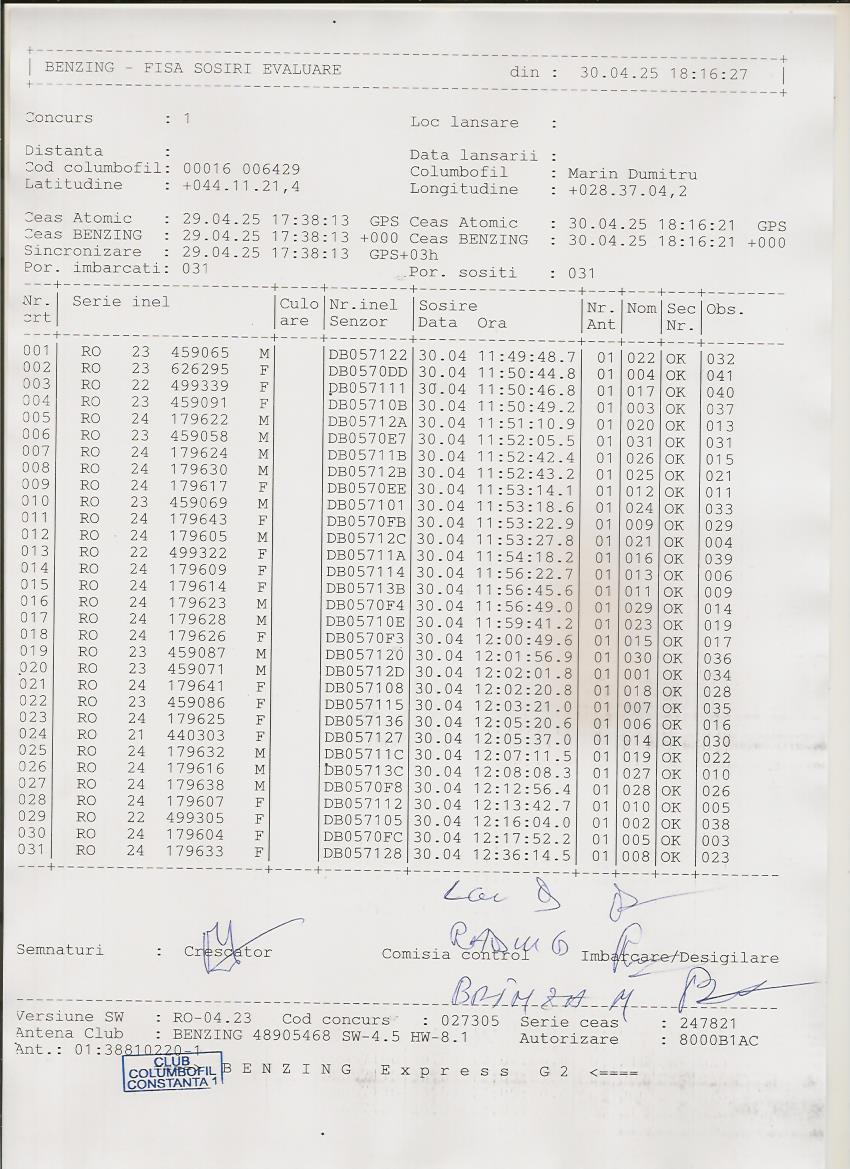 BENZING - FISA SOSIRI EVALUARE din : 30.04.25 18:16:27
Concurs : 1 Loc lansare :
Distanta : Data lansarii :
Cod columbofil: 00016 006429 Columbofil : Marin Dumitru
Latitudine : +044.11.21,4 Longitudine : +028.37.04,2
Ceas Atomic : 29.04.25 17:38:13 GPS Ceas Atomic : 30.04.25 18:16:21 GPS
Ceas BENZING : 29.04.25 17:38:13 +000 Ceas BENZING : 30.04.25 18:16:21 +000
Sincronizare : 29.04.25 17:38:13 GPS+03h
Por. imbarcati: 031 Por. sositi : 031
Nr. Serie inel Culo Nr.inel Sosire Nr. Nom Sec Obs.
crt are Senzor Data Ora Ant Nr.
001 RO 23 459065 M DB057122 30.04 11:49:48.7 01 022 OK 032
002 RO 23 626295 F DB0570DD 30.04 11:50:44.8 01 004 OK 041
003 RO 22 499339 F DB057111 30.04 11:50:46.8 01 017 OK 040
004 RO 23 459091 F DB05710B 30.04 11:50:49.2 01 003 OK 037
005 RO 24 179622 M DB05712A 30.04 11:51:10.9 01 020 OK 013
006 RO 23 459058 M DB0570E7 30.04 11:52:05.5 01 031 OK 031
007 RO 24 179624 M DB05711B 30.04 11:52:42.4 01 026 OK 015
008 RO 24 179630 M DB05712B 30.04 11:52:43.2 01 025 OK 021
009 RO 24 179617 F DB0570EE 30.04 11:53:14.1 01 012 OK 011
010 RO 23 459069 M DB057101 30.04 11:53:18.6 01 024 OK 033
011 RO 24 179643 F DB0570FB 30.04 11:53:22.9 01 009 OK 029
012 RO 24 179605 M DB05712C 30.04 11:53:27.8 01 021 OK 004
013 RO 22 499322 F DB05711A 30.04 11:54:18.2 01 016 OK 039
014 RO 24 179609 F DB057114 30.04 11:56:22.7 01 013 OK 006
015 RO 24 179614 F DB05713B 30.04 11:56:45.6 01 011 OK 009
016 RO 24 179623 M DB0570F4 30.04 11:56:49.0 01 029 OK 014
017 RO 24 179628 M DB05710E 30.04 11:59:41.2 01 023 OK 019
018 RO 24 179626 F DB0570F3 30.04 12:00:49.6 01 015 OK 017
019 RO 23 459087 M DB057120 30.04 12:01:56.9 01 030 OK 036
020 RO 23 459071 M DB05712D 30.04 12:02:01.8 01 001 OK 034
021 RO 24 179641 F DB057108 30.04 12:02:20.8 01 018 OK 028
022 RO 23 459086 F DB057115 30.04 12:03:21.0 01 007 OK 035
023 RO 24 179625 F DB057136 30.04 12:05:20.6 01 006 OK 016
024 RO 21 440303 F DB057127 30.04 12:05:37.0 01 014 OK 030
025 RO 24 179632 M DB05711C 30.04 12:07:11.5 01 019 OK 022
026 RO 24 179616 M DB05713C 30.04 12:08:08.3 01 027 OK 010
027 RO 24 179638 M DB0570F8 30.04 12:12:56.4 01 028 OK 026
028 RO 24 179607 F DB057112 30.04 12:13:42.7 01 010 OK 005
029 RO 22 499305 F DB057105 30.04 12:16:04.0 01 002 OK 038
030 RO 24 179604 F DB0570FC 30.04 12:17:52.2 01 005 OK 003
031 RO 24 179633 F DB057128 30.04 12:36:14.5 01 008 OK 023
Semnaturi : Crescator Comisia control Imbarcare/Desigilare
BRINZA M
Versiune SW : RO-04.23 Cod concurs : 027305 Serie ceas : 247821
Antena Club : BENZING 48905468 SW-4.5 HW-8.1 Autorizare : 8000B1AC
Ant.: 01:38810220-1
CLUB
COLUMBOFIL
CONSTANTA 1
BENZING Express G2 <====